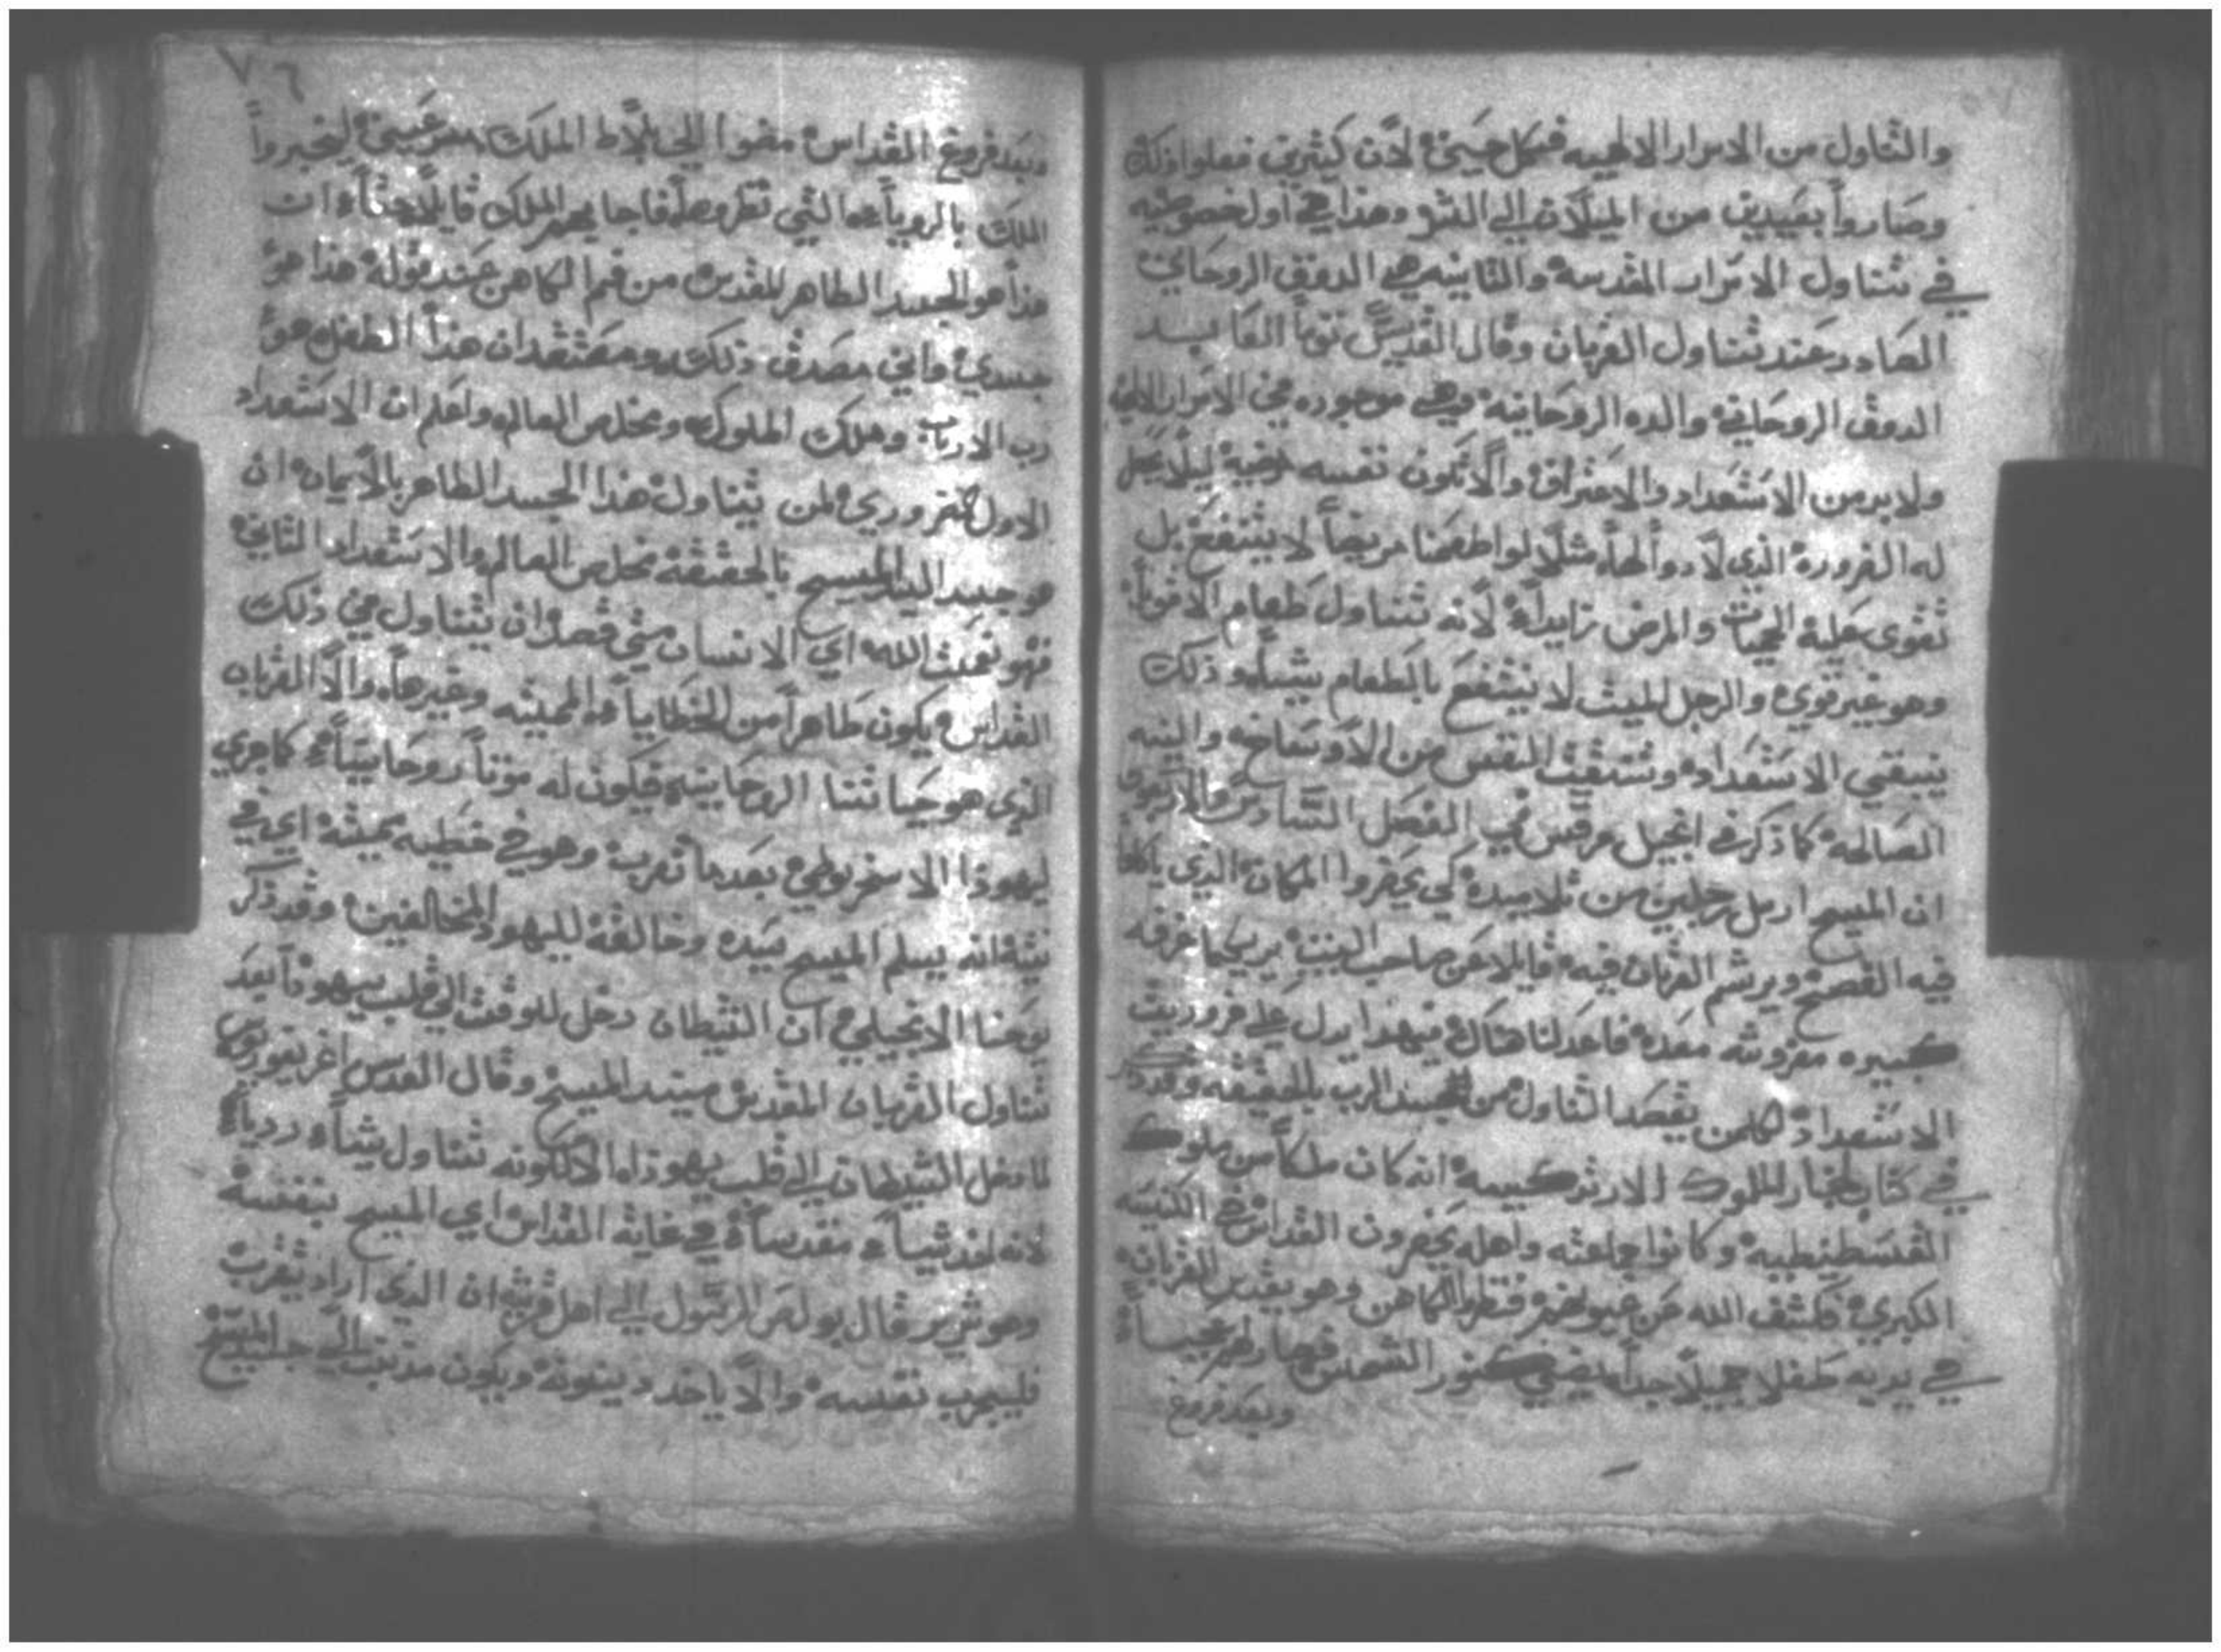 والتناول من الاسرار الالهيه فى كل حين لان كثيرين فعلوا ذلك
وصاروا بعيدين من الميلان الي الشر وهذا هي اول خصوصيه
في تناول الاسرار المقدسة والثانيه هي الدوق الروحاني
الصادر عند تناول القربان وقال القديس توما العابد
الدوق الروحاني والده الروحانيه هي موجوده في الاسرار الالهي
ولا بد من الاستعداد والاعتراف والا تكون نفسه
له الضرورة الذي لا دوا لها مثلا لو اطعمنا مريضا لا ينتفع بل
تقوى عليه الحميات والمرض زايدا لانه تناول طعام الاقويا
وهو غير قوي والرجل الميت لا ينتفع بالطعام بشيا ذلك
ينبغي الاستعداد وتنظيف النفس من الاوساخ والنيه
الصالحة كما ذكر في انجيل مرقس في الفصل السادس والاربعون
ان المسيح ارسل رجلين من تلاميده كي يحضروا المكان الذي ياكلوا
فيه الفصح ويرشم القربان فيه قايلا عن صاحب البيت يريكما غرفه
كبيره مفروشه معده فاعدلنا هناك فبهدا يدل علي ضروريت
الاستعداد لكلمن يقصد التناول من الجسد الرب بالحقيقه وقد ذكر
في كتاب اخبار الملوك انه كان ملكا من ملوك
القسطنطينيه وكانوا جماعته واهله يحضرون القداس في الكنيسه
الكبري فكشف الله عن عيونهم فنظروا الكاهن وهو يقدس القربان
في يديه طفلا جميلا جدا يضي كنور الشمس فصار لهم عجيبا
وبعد فروغ
٧٦
وبعد فروغ القداس مضوا الي بلاط الملك ليخبروا
الملك بالرويا التي نظروها فاجابهم الملك قايلا حقا ان
هذا هو الجسد الطاهر المقدس من فم الكاهن عند قوله هذا هو
جسدي واني مصدق ذلك ومعتقد ان هذا الطفل هو
رب الارباب وملك الملوك ومخلص العالم واعلم ان الاستعداد
الاول ضروري لمن يتناول هذا الجسد الطاهر بالايمان ان
هو جسد السيد المسيح بالحقيقة مخلص العالم والاستعداد الثاني
فهو نعمت الله اي الانسان متي قصد ان يتناول في ذلك
القداس يكون طاهرا من الخطايا المميته وغيرها والا القربان
الذي هو حياتنا الروحانيه فيكون له موتا روحانيا كما جري
ليهوذا الاسخريوطي بعدما تقرب وهو في خطيه مميتة اي في
نيته انه يسلم المسيح سيده وخالقه لليهود المخالفين وقد ذكر
يوحنا الانجيلي ان الشيطان دخل للوقت الي قلب يهوذا بعد
تناول القربان المقدس سيد المسيح وقال القديس اغريغوريوس
لما دخل الشيطان الي قلب يهوذا الا لكونه تناول شيا رديا
لانه اخذ شيا مقدسا في غاية القداس اي المسيح بنفسه
وهو شرير قال بولص الرسول الي اهل قرنتيه ان الذي اراد يتقرب
فليجرب نفسه والا ياخد دينونة ويكون مذنب الي جسد المسيح